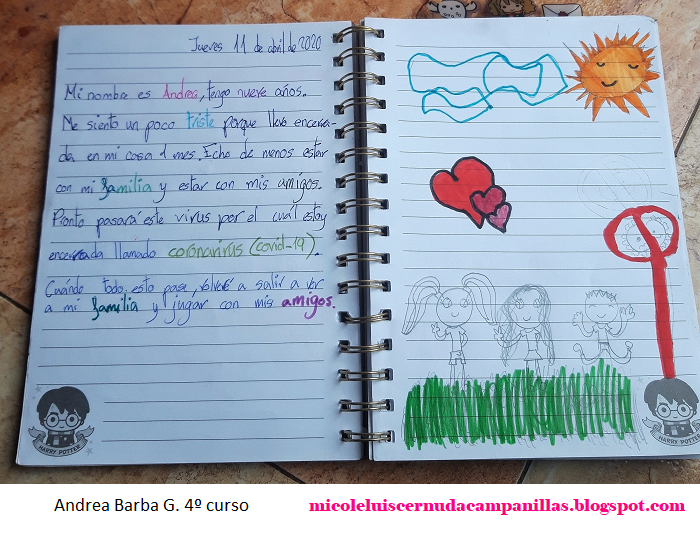 Jueves 11 de abril de 2020
Mi nombre es Andrea, tengo nueve años.
Me siento un poco triste porque llevo encerra-
da en mi casa 1 mes. Echo de menos estar
con mi familia y estar con mis amigos.
Pronto pasará este virus por el cuál estoy
encerrada llamado coronavirus (covid-19).
Cuándo todo esto pase, volveré a salir a ver
a mi familia y jugar con mis amigos.
HARRY POTTER
HARRY POTTER
Andrea Barba G. 4º curso
micoleluiscernudacampanillas.blogspot.com